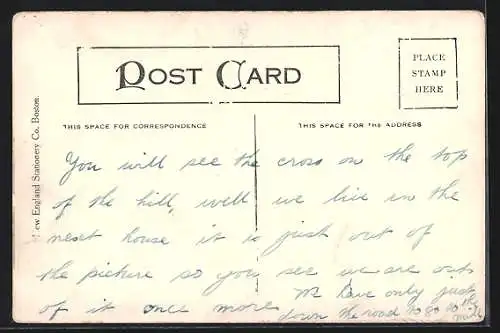 POST CARD
PLACE
STAMP
HERE
THIS SPACE FOR CORRESPONDENCE
THIS SPACE FOR THE ADDRESS
ew England Stationery Co. Boston.
You will see the cross on the top
of the hill, well we live in the
next house it is just out of
the picture so you see we are out
of it once more
We have only just
down the road to go to the